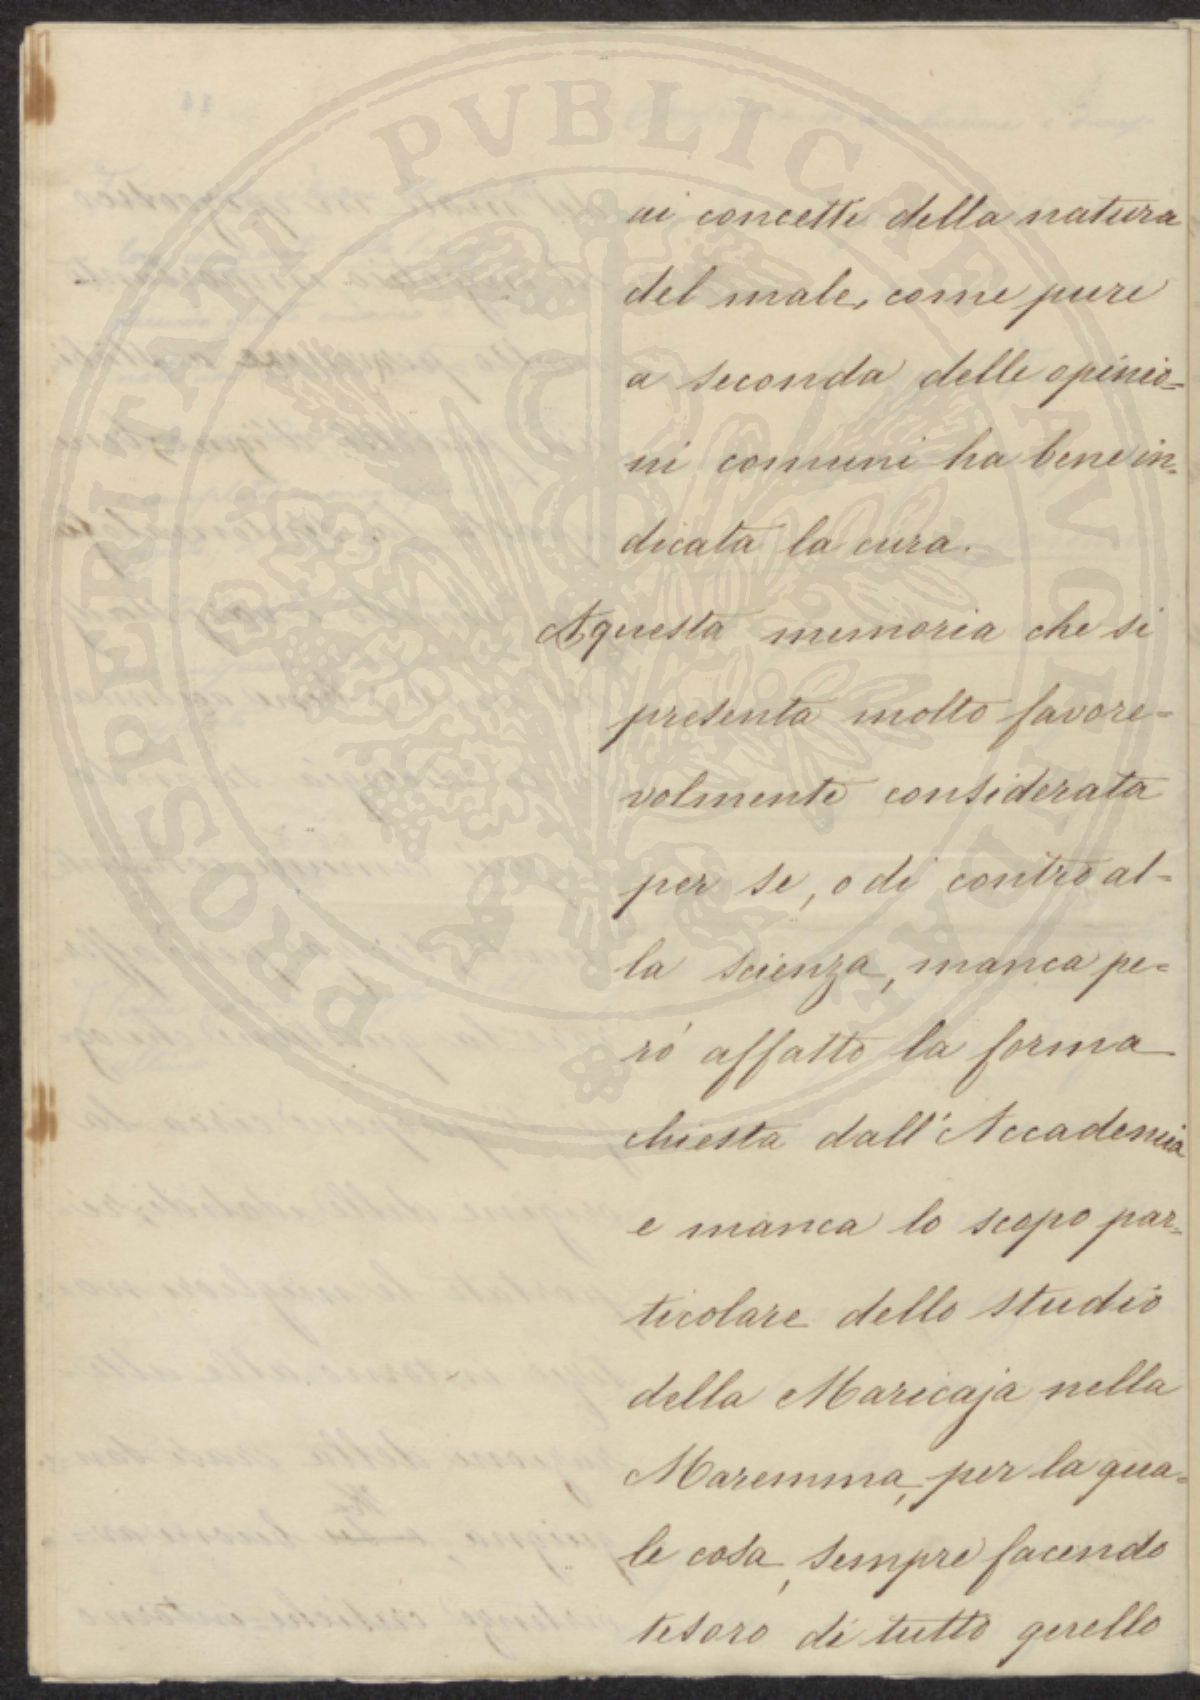 PROSPERITATI PVBLICAE AVGENDAE
ai concetti della natura
del male, come pure
a seconda delle opinio=
ni comuni ha bene in=
dicata la cura.
A questa memoria che si
presenta molto favore=
volmente considerata
per se, o di contro al=
la scienza, manca pe=
ró affatto la forma
chiesta dall'Accademia
e manca lo scopo par=
ticolare dello studio
della Maricaja nella
Maremma, per la qua=
le cosa, sempre facendo
tesoro di tutto quello